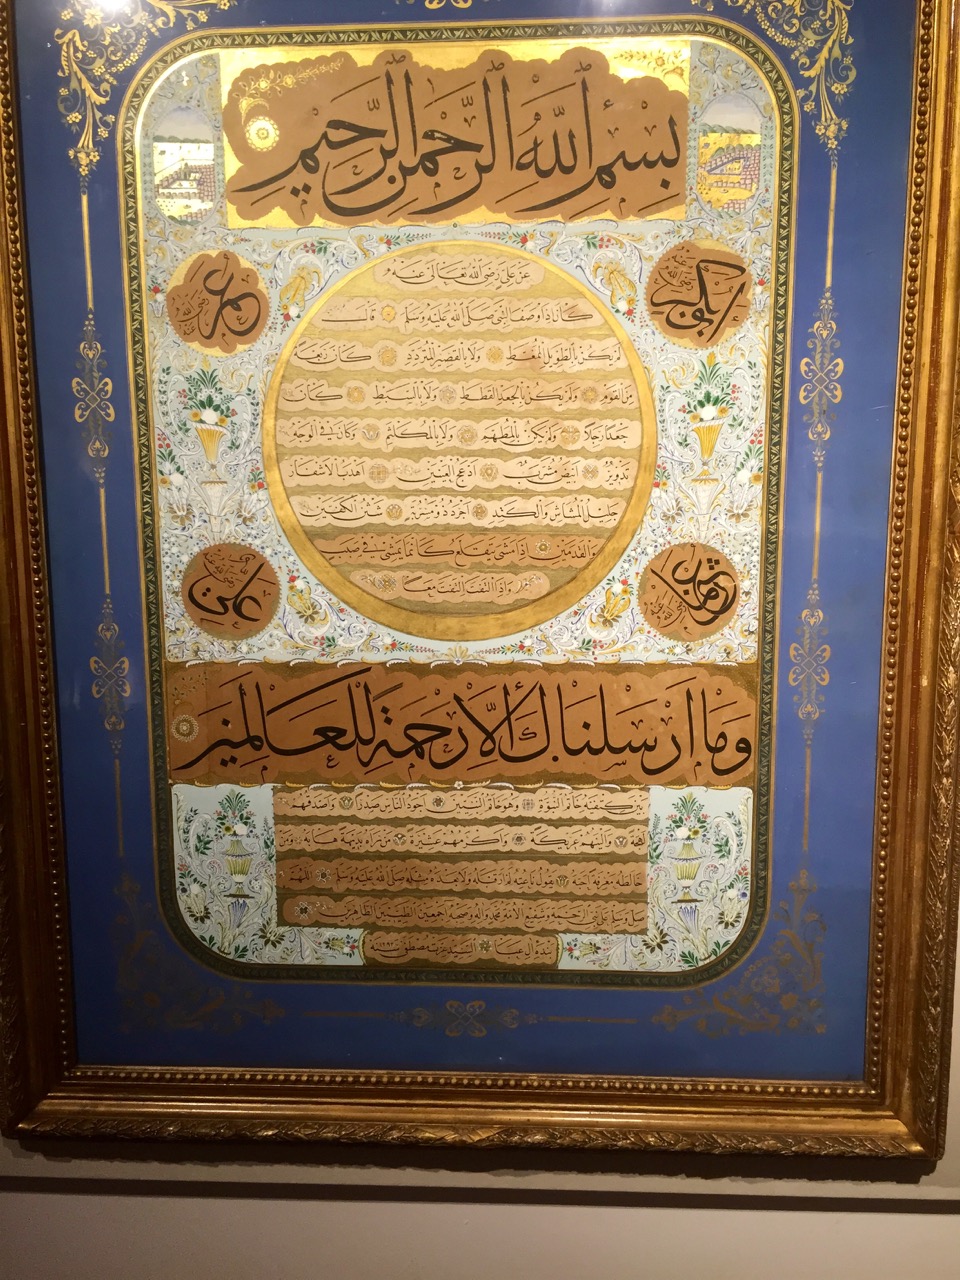 بسم الله الرحمن الرحيم
ابو بكر رضي الله عنه
عمر رضي الله عنه
عن علي رضي الله تعالى عنه
كان اذا وصف النبي صلى الله عليه وسلم قال
لم يكن بالطويل الممغط ولا بالقصير المتردد كان ربعة
من القوم ولم يكن بالجعد القطط ولا بالسبط كان
جعدا رجلا ولم يكن بالمطهم ولا بالمكلثم وكان في الوجه
تدوير ابيض مشرب ادعج العينين اهدب الاشفار
جليل المشاش والكتد اجرد ذو مسربة شثن الكفين
والقدمين اذا مشى يتقلع كانما يمشي في صبب
واذا التفت التفت معا
عثمان رضي الله عنه
علي رضي الله عنه
وما ارسلناك الا رحمة للعالمين
بين كتفيه خاتم النبوة وهو خاتم النبيين اجود الناس صدرا واصدقهم
لهجة والينهم عريكة واكرمهم عشيرة من رآه بديهة هابه ومن
خالطه معرفة احبه يقول ناعته لم ار قبله ولا بعده مثله صلى الله عليه وسلم اللهم
صل وسلم على نبي الرحمة وشفيع الامة محمد وآله وصحبه اجمعين الطيبين الطاهرين
السيد عزت مصطفى